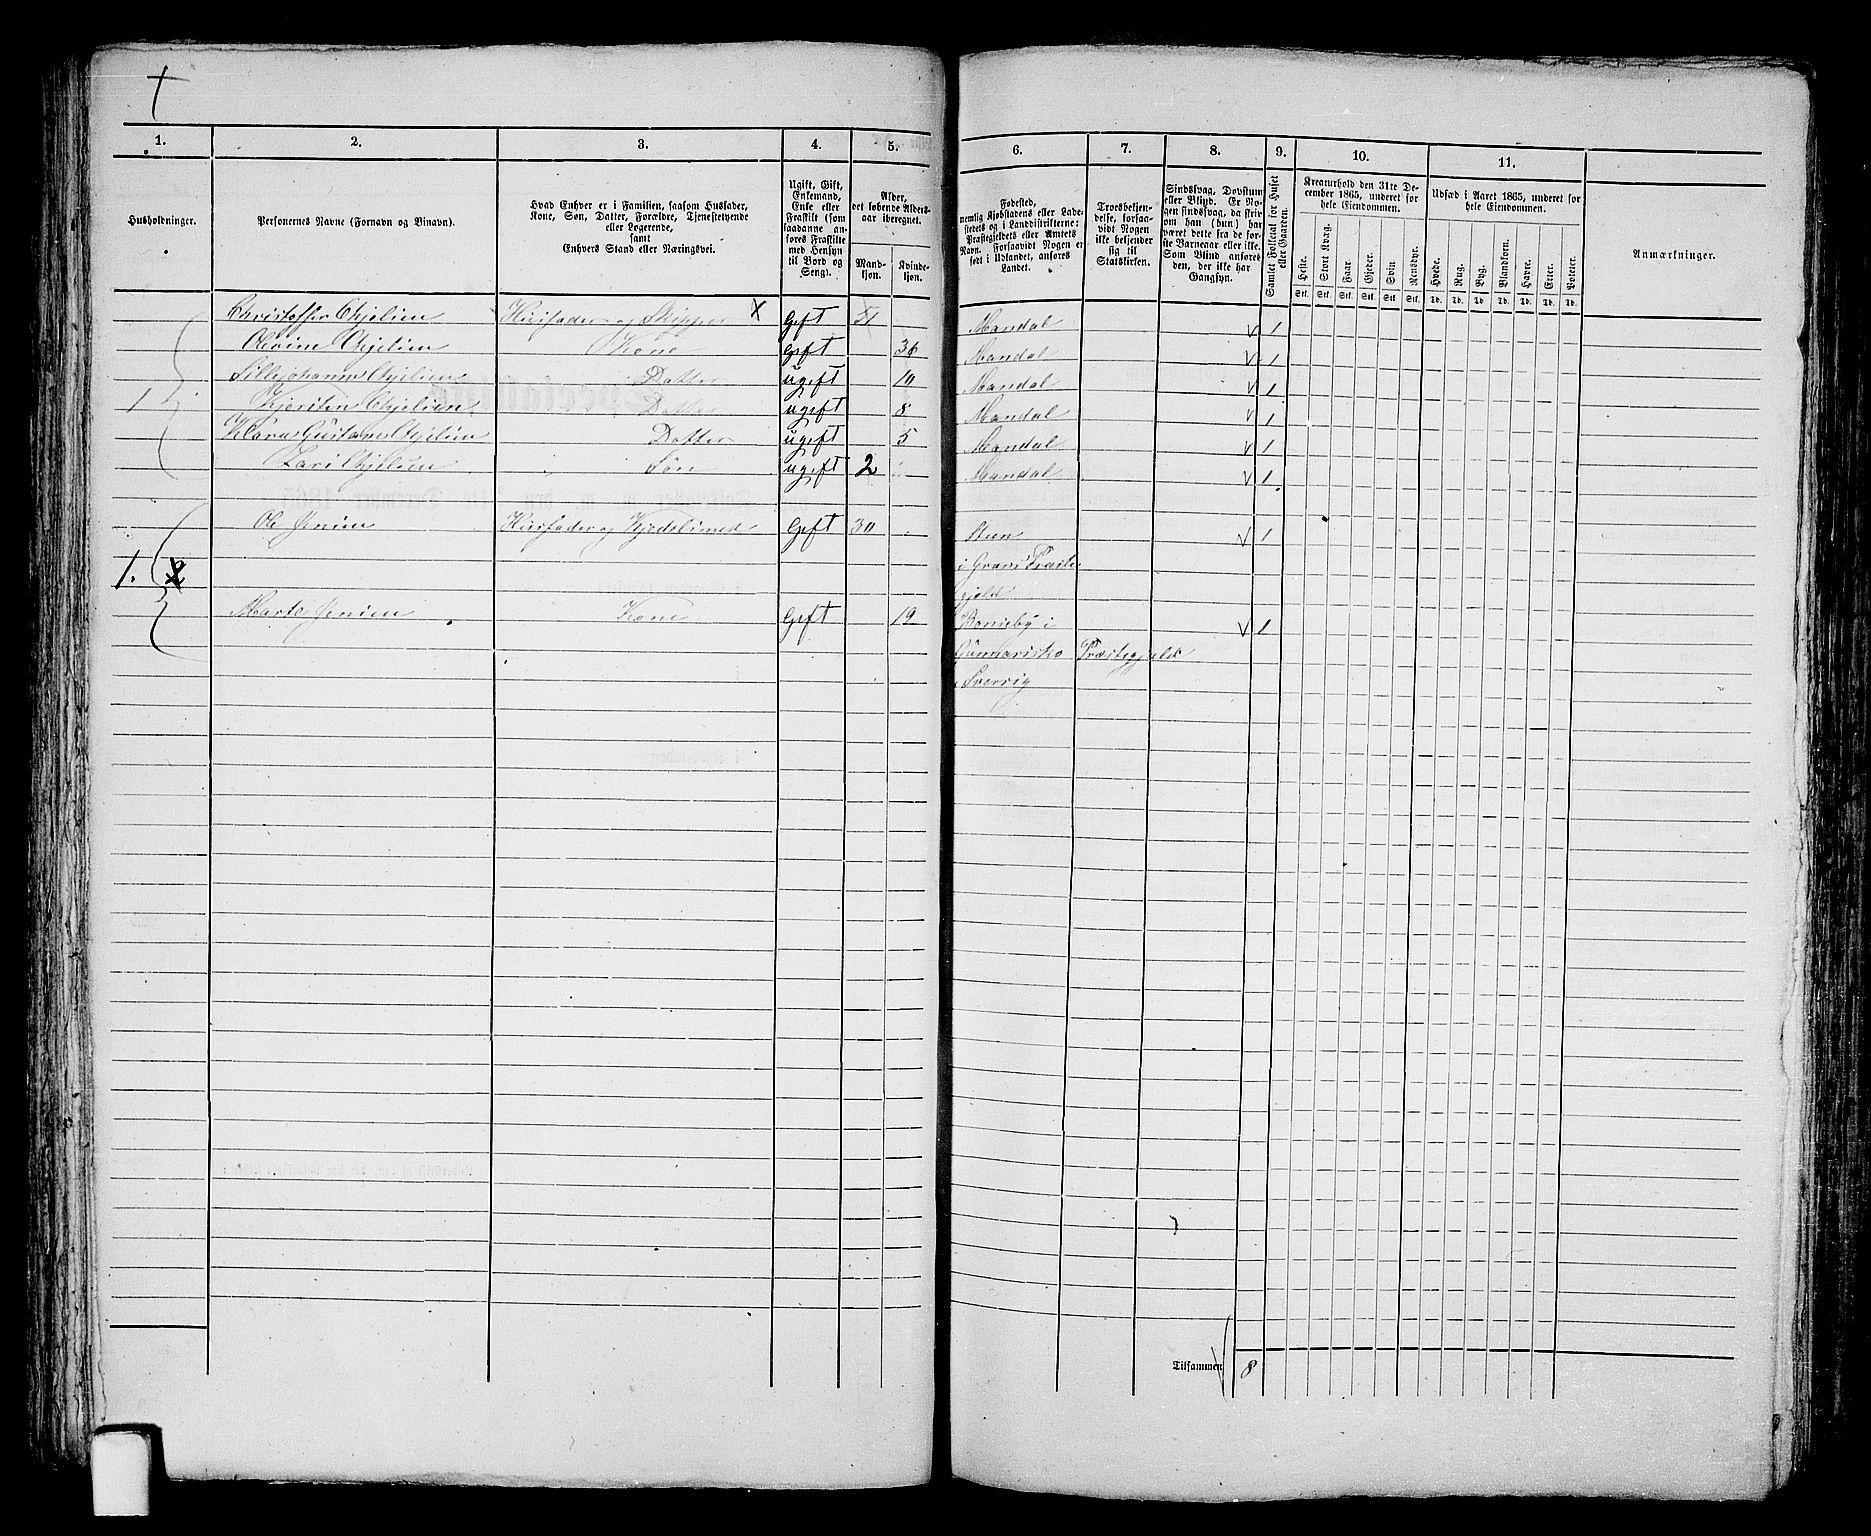 1. 2. 3. 4. 5. 6. 7. 8. 9. 10. 11.
Husholdninger.
Personernes Navne (Fornavn og Binavn).
Hvad Enhver er i Familien, saasom Husfader,
Kone, Søn, Datter, Forældre, Tjenestetyende
eller Logerende,
samt
Enhvers Stand eller Næringsvei.
Ugift, Gift,
Enkemand,
Enke eller
Fraskilt (som
saadanne an-
føres Fraskilte
med Hensyn
til Bord og
Seng).
Alder,
det løbende Alders-
aar iberegnet.
Mand-
kjøn.
Kvinde-
kjøn.
Fødested,
nemlig Kjøbstadens eller Lade-
stedets og i Landdistrikterne:
Præstegjeldets eller Amtets
Navn. Forsaavidt Nogen er
født i Udlandet, anføres
Landet.
Troesbekjen-
delse, forsaa-
vidt Nogen
ikke bekjender
sig til
Statskirken.
Sindssvag, Døvstum
eller Blind. Er No-
gen sindssvag, da skriv
om han (hun) har
været dette fra de før-
ste Barneaar eller ikke.
Som Blind anføres
den, der ikke har
Gangsyn.
Samlet Folketal for Huset
eller Gaarden.
Kreaturhold den 31te De-
cember 1865, underet for
hele Eiendommen.
Heste. Stort Kvæg. Faar. Gjeder. Svin. Rensdyr.
Stk. Stk. Stk. Stk. Stk. Stk.
Udsæd i Aaret 1865, underet for
hele Eiendommen.
Hvede. Rug. Byg. Blandkorn. Havre. Erter. Poteter.
Td. Td. Td. Td. Td. Td. Td.
Anmærkninger.
Christoffer Gjelien Husfader og Skipper X Gift Mandal V 1
Olevine Gjelien Kone Gift 36 Mandal V 1
Gjelien Datter ugift 10 Mandal V 1
1 Gjelien Datter ugift 8 Mandal V 1
Klara Gustava Gjelien Datter ugift 5 Mandal V 1
Gjelien Søn ugift 2 Mandal V 1
Ole Jenien Husfader og Gift 30 Steen V 1
1. i Grans Præste
gjeld
Marte Jenien Kone Gift 19 i V 1
Præstegjeld
i Sverrig
Tilsammen 8